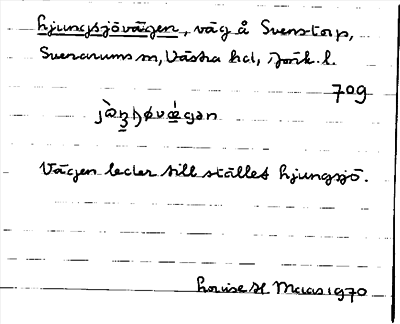 hjungsjövägen, väg å Svenstorp,
Svenarums sn, Västra hd, Jönk. l.
709
Vägen leder till stället hjungsjö.
Louise H Maras 1970